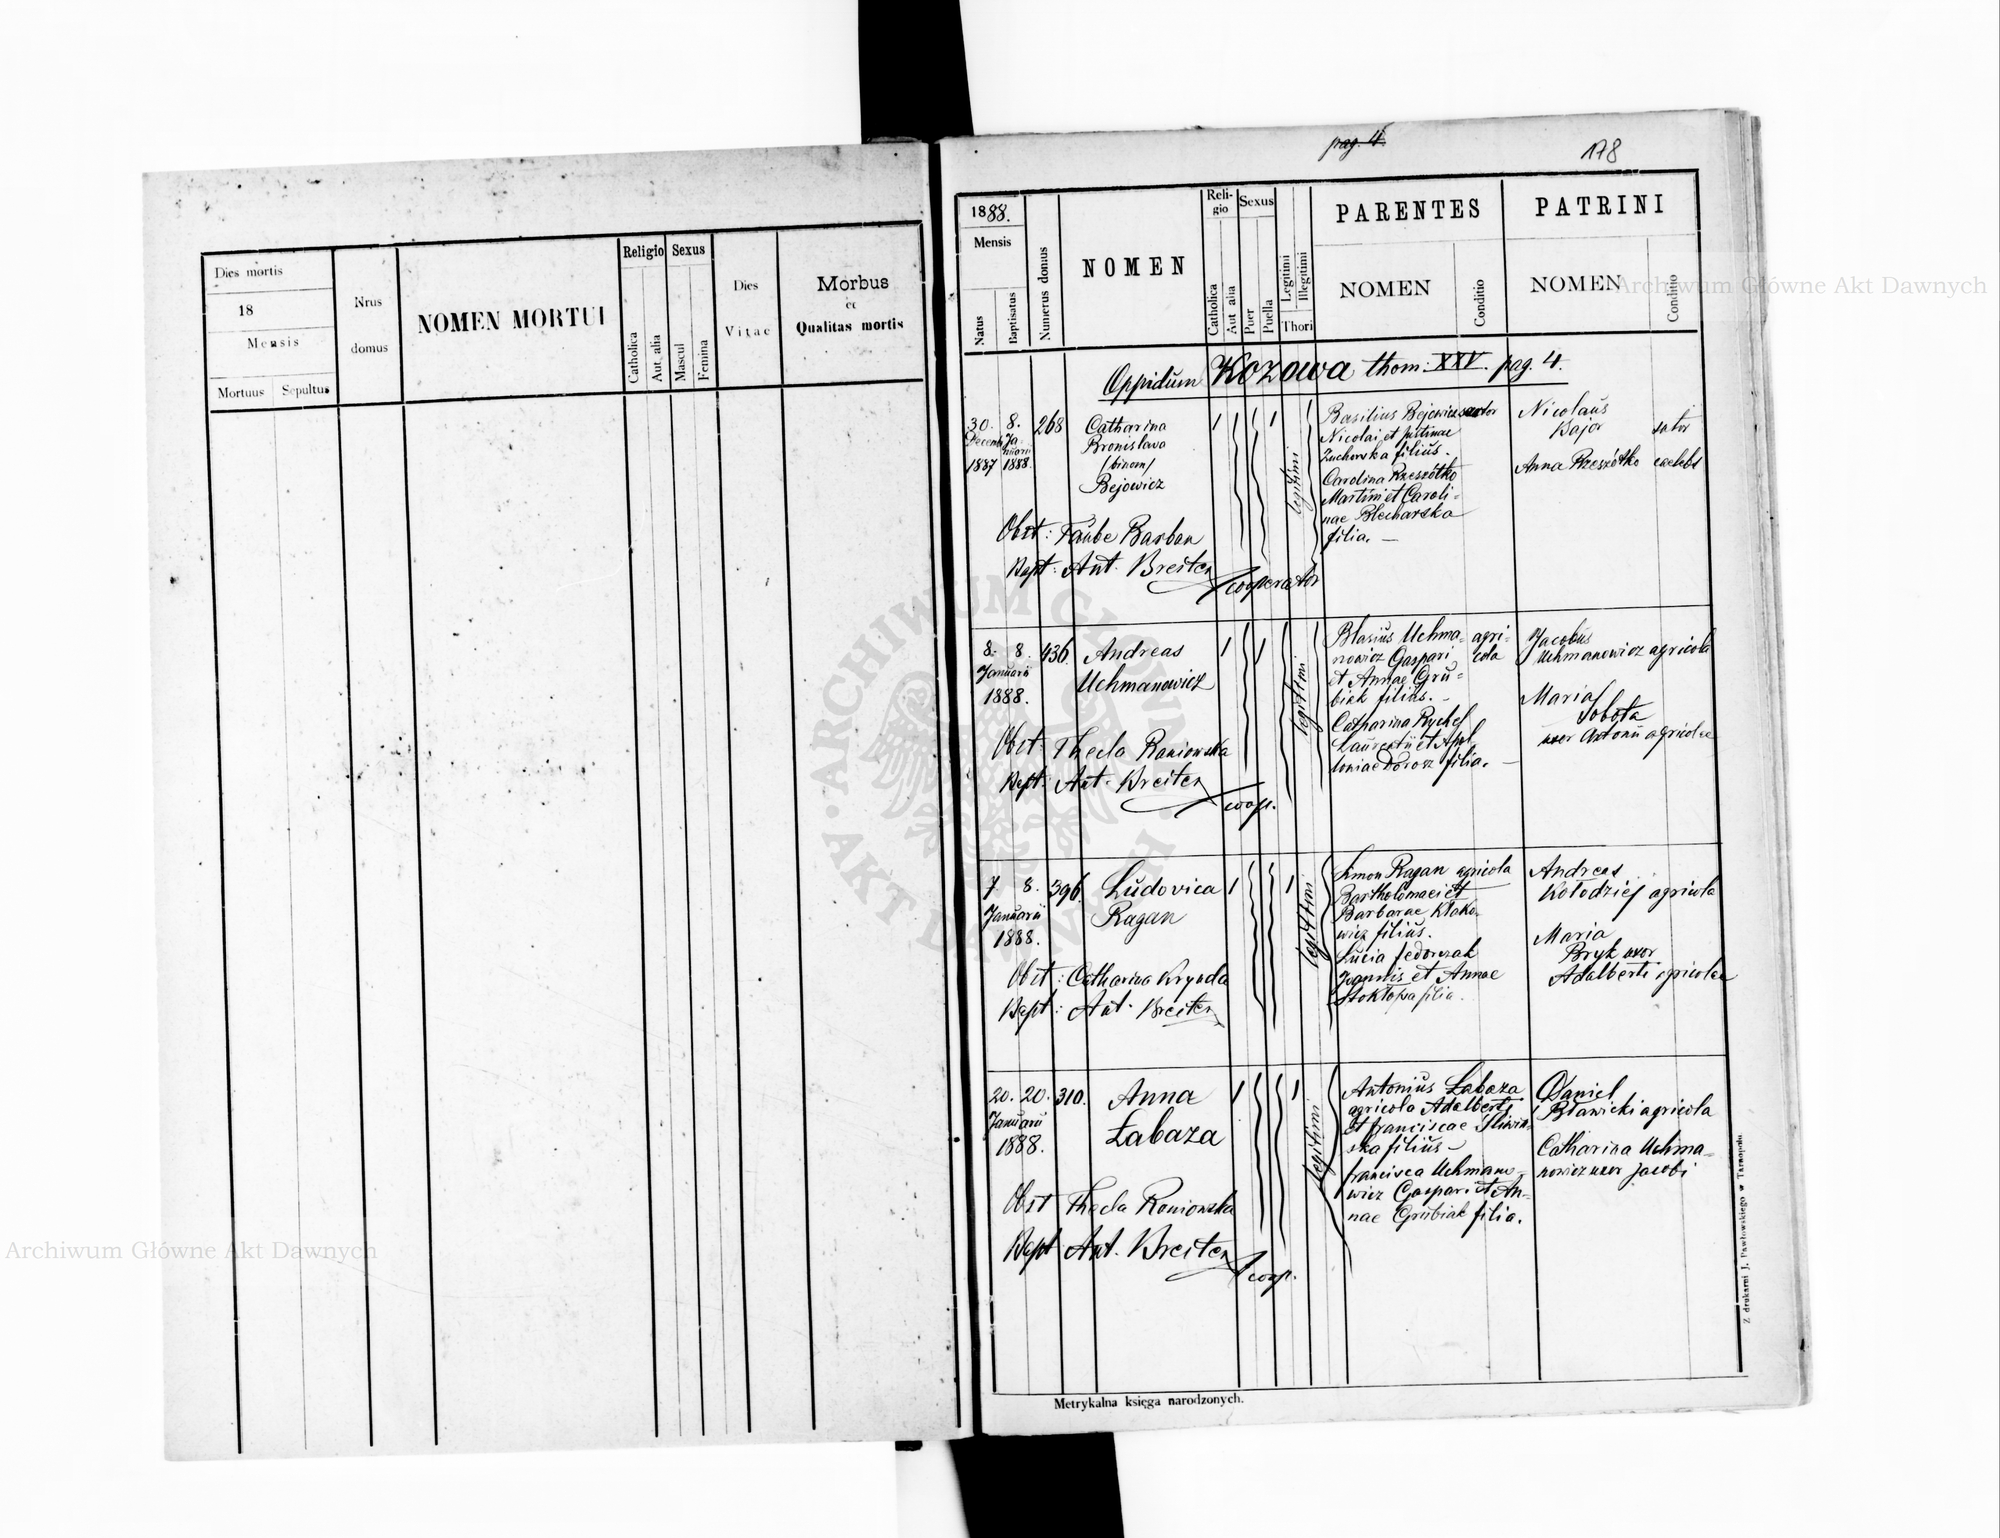 pag. 4.
178
Dies mortis
18
Mensis
Mortuus
Sepultus
Nrus
domus
NOMEN MORTUI
Religio
Catholica
Aut alia
Sexus
Mascul
Femina
Dies
Vitae
Morbus
et
Qualitas mortis
1888.
Mensis
Natus
Baptisatus
Numerus domus
NOMEN
Reli-
gio
Catholica
Aut alia
Sexus
Puer
Puella
Legitimi
Illegitimi
Thori
PARENTES
NOMEN
Conditio
PATRINI
NOMEN
Conditio
Oppidum Kozowa thom: XXV. pag. 4.
30. 8. 268
Decemb Ja-
nuarii
1887 1888.
Catharina
Bronislava
/binom/
Bejowicz
1 1
legitimi
Basilius Bejowicz sartor
Nicolai et Justinae
Zuchorska filius.
Carolina Rzeszótko
Martini et Caroli-
nae Blecharska
filia. —
Nicolaus
Bajor sator
Anna Rzeszótko caelebs
Obst: Taube Barban
Bapt: Ant. Breiter
cooperator
8. 8. 436.
Januarii
1888.
Andreas
Uchmanowicz
1 1
legitimi
Blasius Uchma- agri-
nowicz Gaspari cola
et Annae Gru-
biak filius. -
Catharina Rychel
Laurentii et Apol
loniae Dorosz filia. —
Jacobus
Uchmanowicz agricola
Maria
Sobota
uxor Antonii agricolae
Obst: Thecla Raniowska
Bapt: Ant. Breiter
coop.
7 8. 396.
Januarii
1888.
Ludovica
Ragan
1 1
legitimi
Simon Ragan agricola
Bartholomaei et
Barbarae Kłako-
wicz filius.
Lucia Fedorczak
Joannis et Annae
Stokłosa filia.
Andreas
Kołodziej agricola
Maria
Bryk uxor
Adalberti agricolae
Obst: Catharina Krynda
Bapt: Ant. Breiter
20. 20. 310.
Januarii
1888.
Anna
Łabaza
1 1
legitimi
Antonius Łabaza
agricola Adalberti
et Franciscae Śliwin-
ska filius —
Francisca Uchmano-
wicz Gaspari et An-
nae Grubiak filia.
Daniel
Bławicki agricola
Catharina Uchma-
nowicz uxor Jacobi
Obst Thecla Roniowska
Bapt Ant. Breiter
coop.
Metrykalna księga narodzonych.
Z drukarni J. Pawłowskiego w Tarnopolu.
Archiwum Główne Akt Dawnych
Archiwum Główne Akt Dawnych
ARCHIWUM GŁÓWNE AKT DAWNYCH